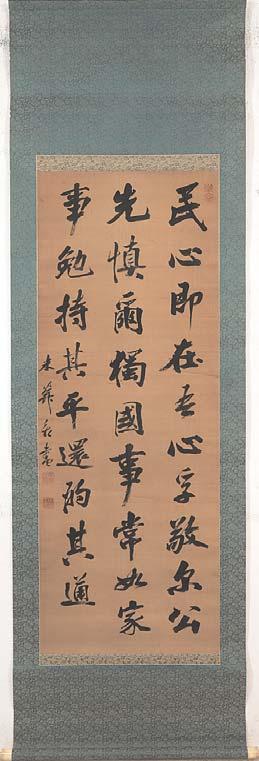 民心即在吾心孚敬尔公
先慎爾獨國事常如家
事勉持其平還酌其通
米葊亥書